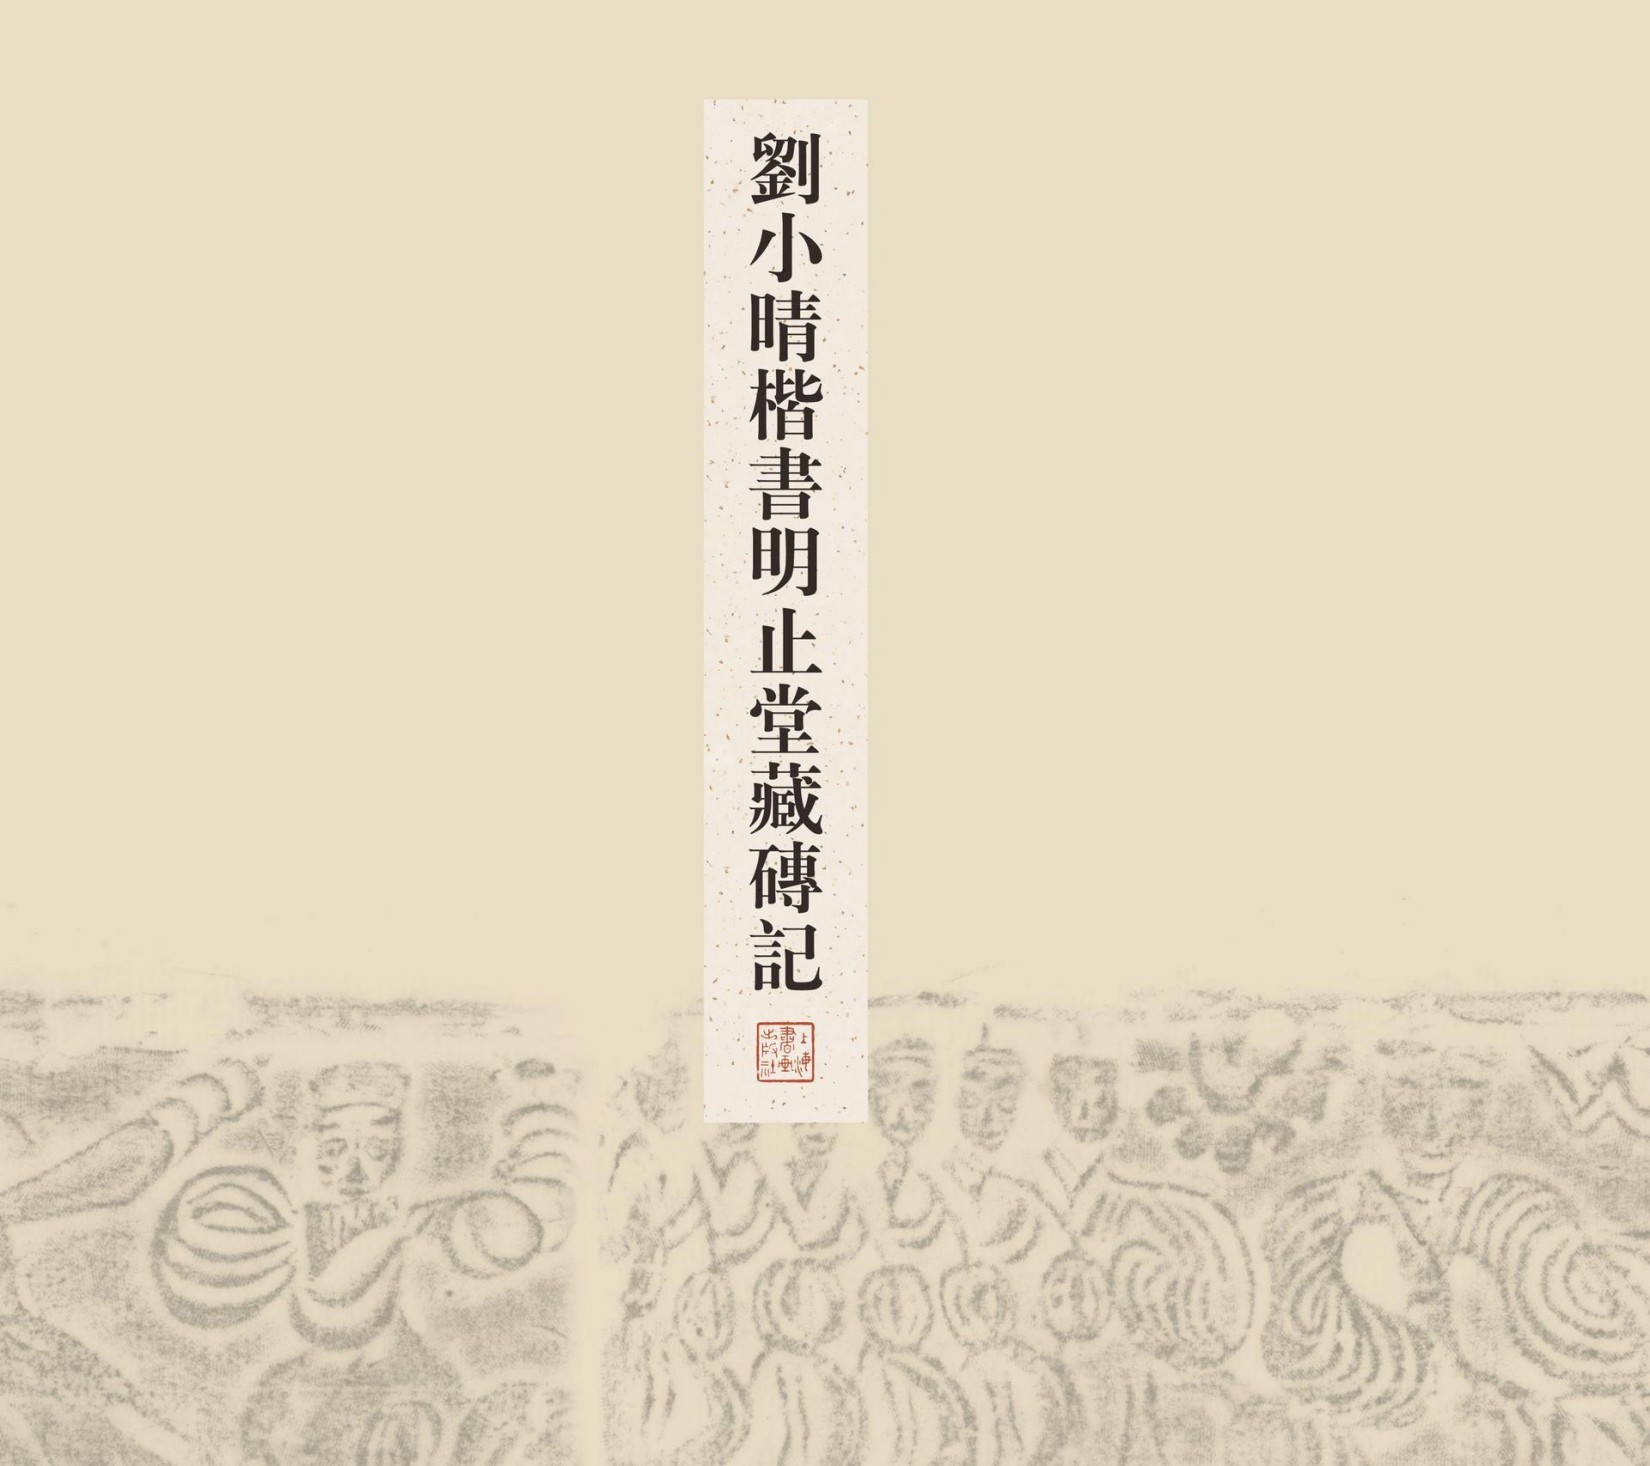 劉小晴楷書明止堂藏磚記
上海
書畫
出版社